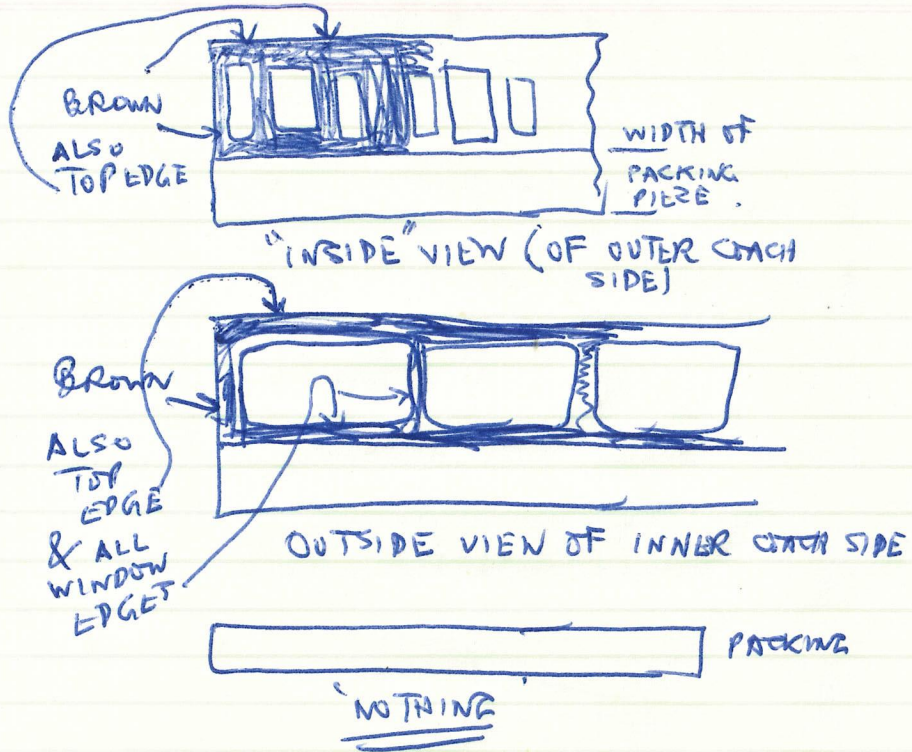 BROWN
ALSO
TOP EDGE
WIDTH OF
PACKING
PIEZE.
"INSIDE" VIEW (OF OUTER COACH
SIDE)
BROWN
ALSO
TOP
EDGE
& ALL
WINDOW
EDGES
OUTSIDE VIEW OF INNER COACH SIDE
PACKING
'NOTHING'